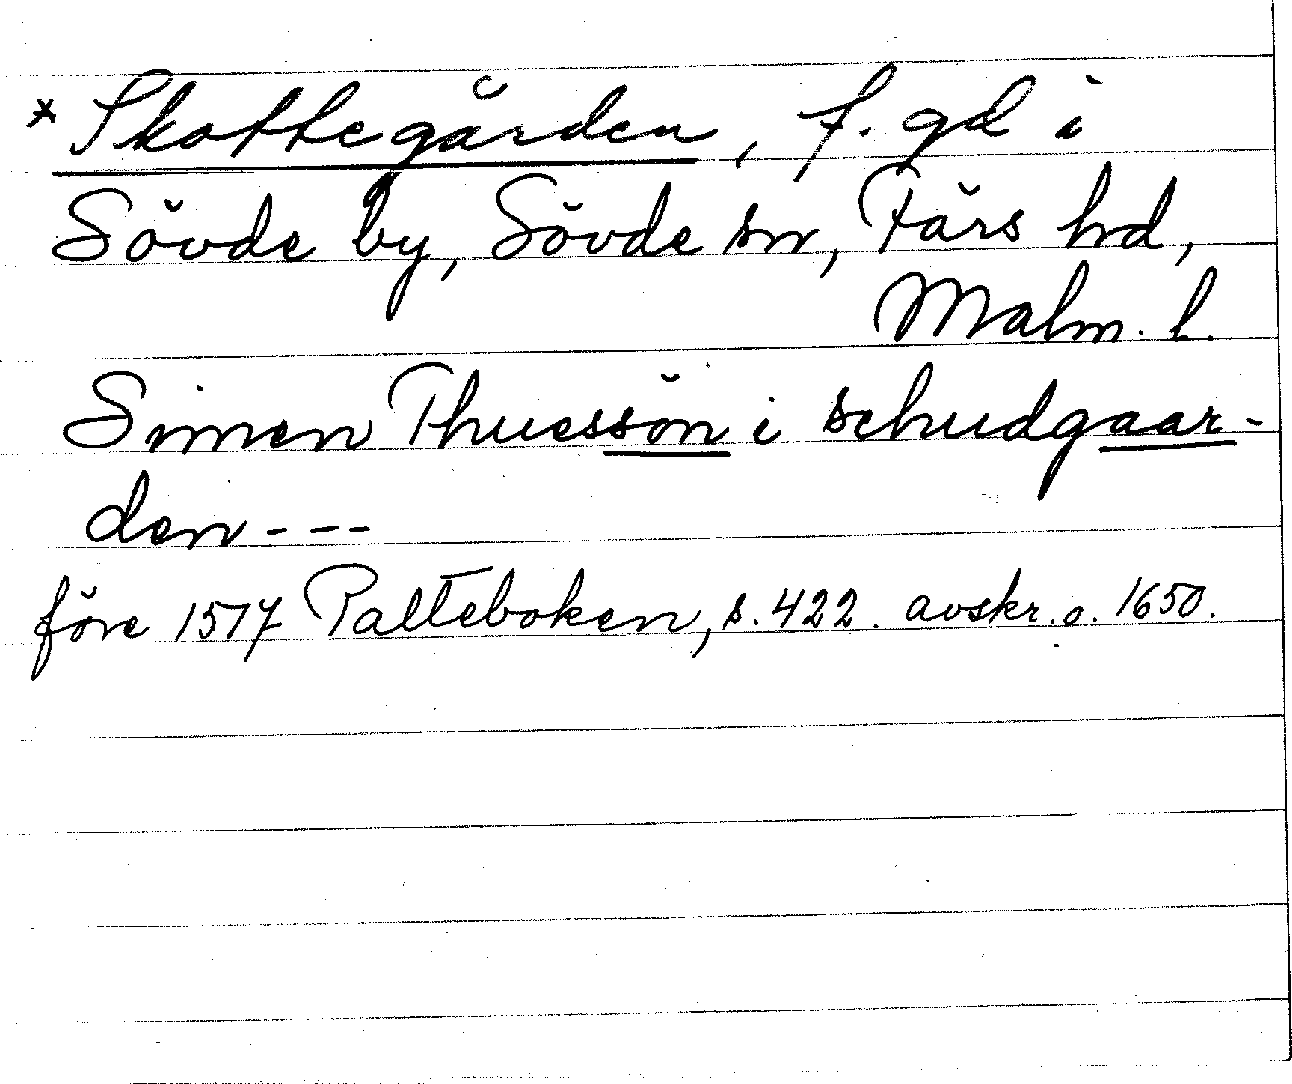 * Skottegården, f. gd i
Sövde by, Sövde sn, Färs hd,
Malm. l.
Simen Thuessön i schudgaar-
den - - -
före 1517 Palteboken, s. 422. avskr. o. 1650.